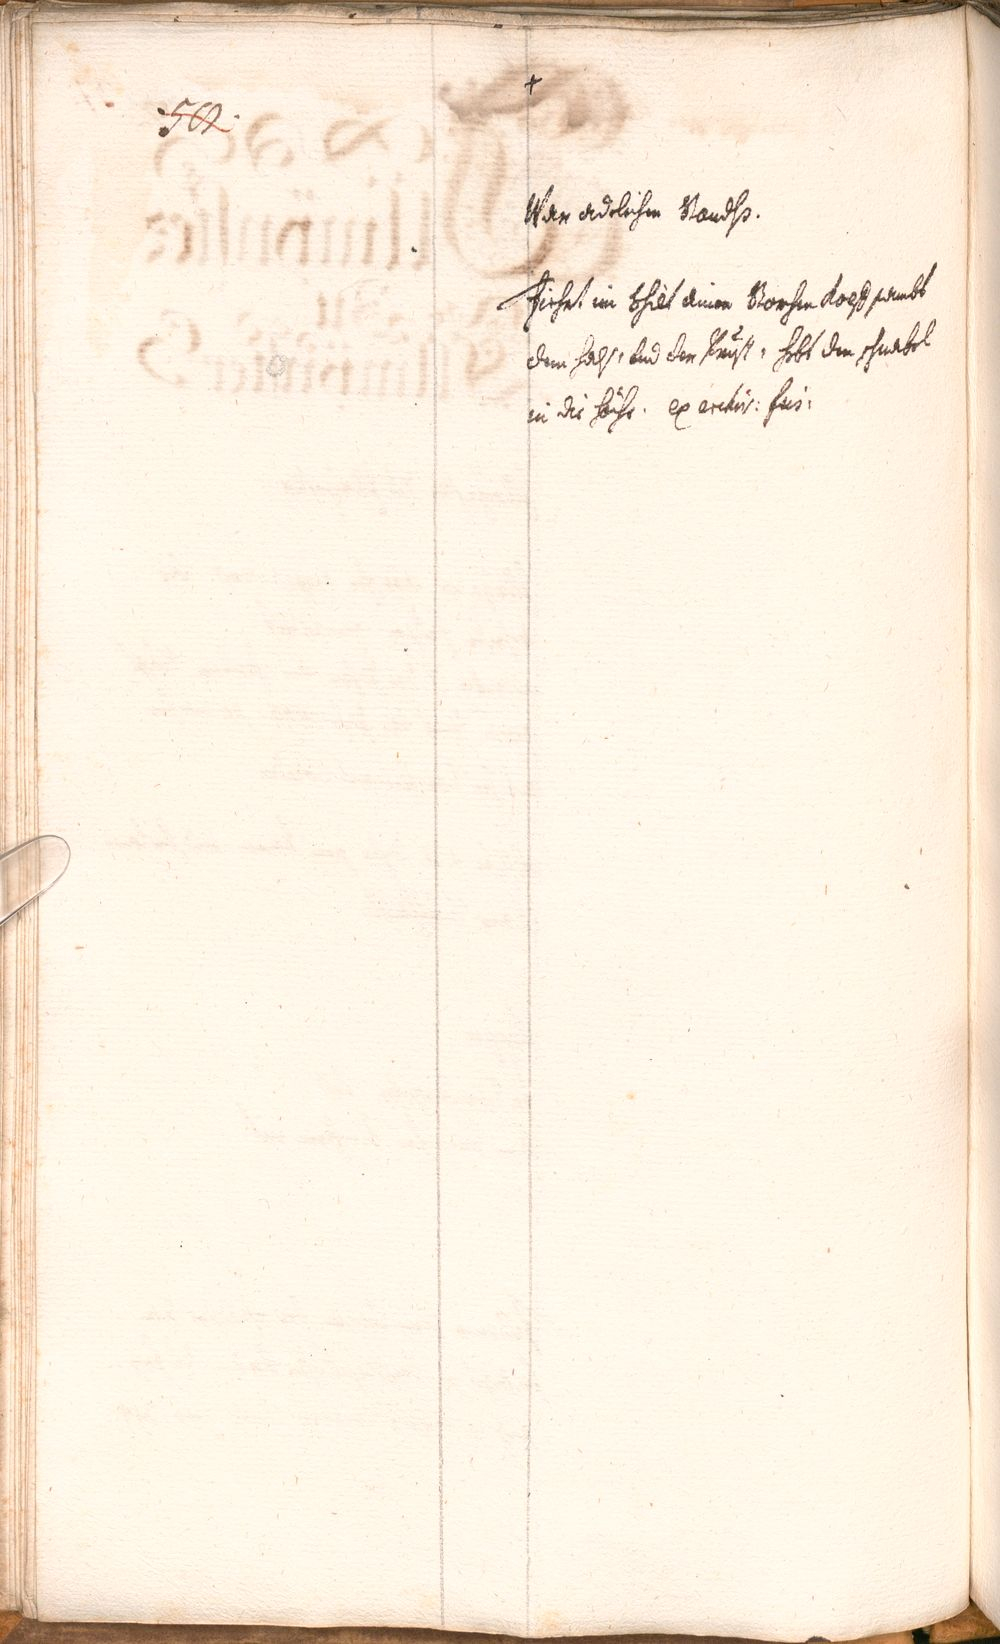 +
502.
War adelichen Standts.
Fiehrt im Schilt einen Storchen Kopff sambt
dem halß, und der Prust, hebt den schnabel
in die höhe. ex archiv: fris: